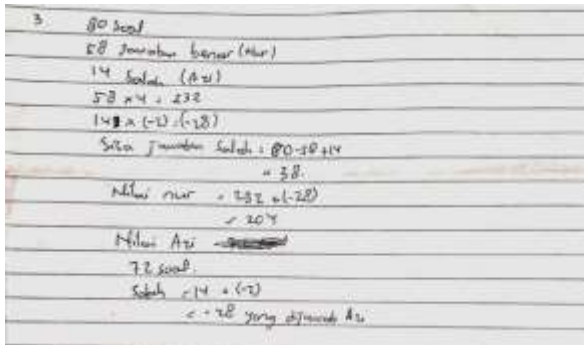 3 80 soal
58 jawaban benar (Nur)
14 Salah (Azi)
58 x 4 = 232
14 x (-2) = (-28)
Sisa jawaban Salah = 80-58+14
= 38.
Nilai nur = 232 + (-28)
= 204
Nilai Azi
72 soal.
Salah = 14 x (-2)
= -28 yang dijawab Azi